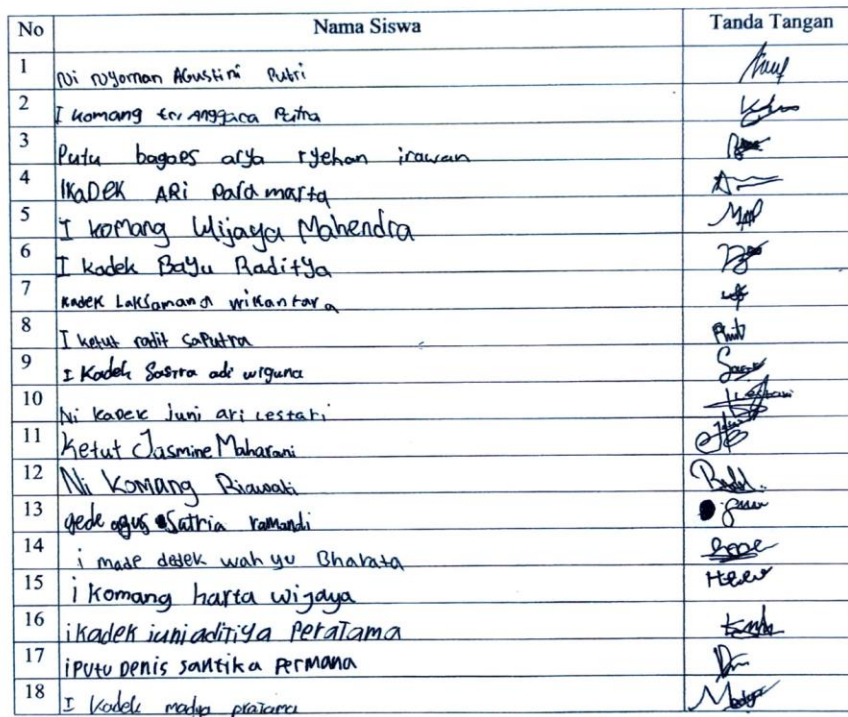 No Nama Siswa Tanda Tangan
1 Ni Nyoman Agustini Putri
2 I Komang tri Anggara Putra
3 Putu bagoes arya ryehan irawan
4 I KADEK ARi Paramarta
5 I Komang Wijaya Mahendra
6 I Kadek Bayu Raditya
7 Kadek Laksamana wikantara
8 I Ketut radit Saputra
9 I Kadek Sastra adi wiguna
10 Ni Kadek Juni ari Lestari
11 Ketut Jasmine Maharani
12 Ni Komang Riawati
13 gede agus Satria ramandi
14 i made dedek wahyu Bharata
15 i Komang harta wijaya
16 i Kadek juni aditiya Peratama
17 i Putu Denis santika Permana
18 I Kadek madya pratama